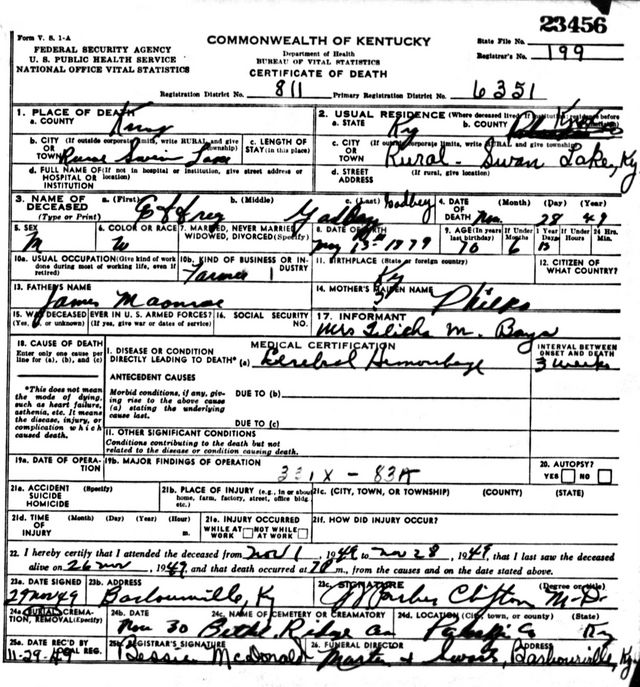 23456
Form V. S. 1-A
COMMONWEALTH OF KENTUCKY
State File No.
FEDERAL SECURITY AGENCY
U. S. PUBLIC HEALTH SERVICE
NATIONAL OFFICE VITAL STATISTICS
Department of Health
BUREAU OF VITAL STATISTICS
CERTIFICATE OF DEATH
Registrar's No. 199
Registration District No. 811 Primary Registration District No. 6351
1. PLACE OF DEATH
a. COUNTY Knox
2. USUAL RESIDENCE (Where deceased lived. If institution: residence before
a. STATE Ky b. COUNTY Knox
b. CITY (If outside corporate limits, write RURAL and give township)
OR TOWN Rural Swan Lake
c. LENGTH OF STAY (in this place)
c. CITY (If outside corporate limits, write RURAL and give township)
OR TOWN Rural - Swan Lake, Ky.
d. FULL NAME OF (If not in hospital or institution, give street address or location)
HOSPITAL OR INSTITUTION
d. STREET ADDRESS (If rural, give location)
3. NAME OF DECEASED (Type or Print)
a. (First) b. (Middle) Gadbey c. (Last) Godbey
4. DATE OF DEATH (Month) (Day) (Year) Nov. 28 49
5. SEX M
6. COLOR OR RACE W
7. MARRIED, NEVER MARRIED, WIDOWED, DIVORCED (Specify)
8. DATE OF BIRTH May 13-1879
9. AGE (In years last birthday) 70 If Under 1 Year 6 If Under 24 Hrs.
10a. USUAL OCCUPATION (Give kind of work done during most of working life, even if retired)
10b. KIND OF BUSINESS OR INDUSTRY Farmer
11. BIRTHPLACE (State or foreign country) Ky
12. CITIZEN OF WHAT COUNTRY?
13. FATHER'S NAME James Maonroe
14. MOTHER'S MAIDEN NAME Philps
15. WAS DECEASED EVER IN U. S. ARMED FORCES?
(Yes, no, or unknown) (If yes, give war or dates of service)
16. SOCIAL SECURITY NO.
17. INFORMANT Mrs M. Bays
18. CAUSE OF DEATH
Enter only one cause per line for (a), (b), and (c)
MEDICAL CERTIFICATION
INTERVAL BETWEEN ONSET AND DEATH
I. DISEASE OR CONDITION DIRECTLY LEADING TO DEATH* (a) Cerebral Hemorrhage 3 weeks
*This does not mean the mode of dying, such as heart failure, asthenia, etc. It means the disease, injury, or complication which caused death.
ANTECEDENT CAUSES
Morbid conditions, if any, giving rise to the above cause (a) stating the underlying cause last.
DUE TO (b)
DUE TO (c)
II. OTHER SIGNIFICANT CONDITIONS
Conditions contributing to the death but not related to the disease or condition causing death.
19a. DATE OF OPERATION
19b. MAJOR FINDINGS OF OPERATION
331X - 83A
20. AUTOPSY? YES NO
21a. ACCIDENT SUICIDE HOMICIDE (Specify)
21b. PLACE OF INJURY (e.g., in or about home, farm, factory, street, office bldg. etc.)
21c. (CITY, TOWN, OR TOWNSHIP) (COUNTY) (STATE)
21d. TIME OF INJURY (Month) (Day) (Year) (Hour) m.
21e. INJURY OCCURRED WHILE AT WORK NOT WHILE AT WORK
21f. HOW DID INJURY OCCUR?
22. I hereby certify that I attended the deceased from Nov 1, 1949 to Nov 28, 1949, that I last saw the deceased
alive on 26 Nov, 1949, and that death occurred at m., from the causes and on the date stated above.
23a. DATE SIGNED 29 Nov 49
23b. ADDRESS Barbourville, Ky
23c. SIGNATURE Parker Clifton M-D. (Degree or title)
24a. BURIAL, CREMATION, REMOVAL (Specify)
24b. DATE Nov 30
24c. NAME OF CEMETERY OR CREMATORY Bethel Ridge
24d. LOCATION (City, town, or county) (State) Ky
25a. DATE REC'D BY LOCAL REG. 11-29-49
25b. REGISTRAR'S SIGNATURE Bessie McDonald
26. FUNERAL DIRECTOR ADDRESS Barbourville, Ky